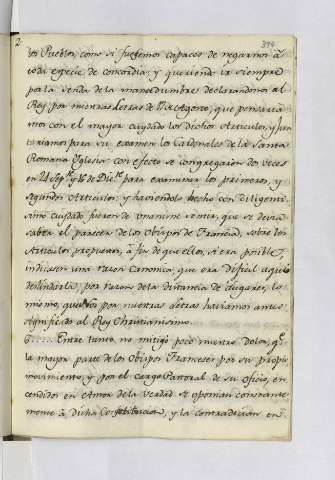 2
394
los Pueblos, como si fuessemos capaces de negarnos à
toda especie de concordia; y queriendo ir siempre
por la senda de la mansedumbre declaramos al
Rey, por nuestras Letras de de Agosto, que pensaria-
mos con el mayor cuydado los dichos Articulos, y jun-
tariamos para su examen los Cardenales de la Santa
Romana Yglesia: con efecto se congregaron dos veces
en 24 Sepre. y 16 de Dicre. para examinar los primeros, y
segundos Articulos; y haviendolo hecho con diligenti-
simo cuidado fueron de unanime sentir, que se devia
saber el parecer de los Obispos de Francia, sobre los
Articulos propuestos, à fin de que ellos, si era posible,
indicasen una razon Canonica, que era dificil aqui
deslindarla, por razon de la distancia de lugares, lo
mismo, que por nuestras letras haviamos antes
significado al Rey Christianisimo.
6 Entre tanto no mitigò poco nuestro Dolor, qe.
la mayor parte de los Obispos Franceses por su propio
movimiento, y por el cargo Pastoral de su Oficio, en-
cendidos en Amor de la Verdad se oponian constante-
mente à dicha Constitucion, y la contradecian en